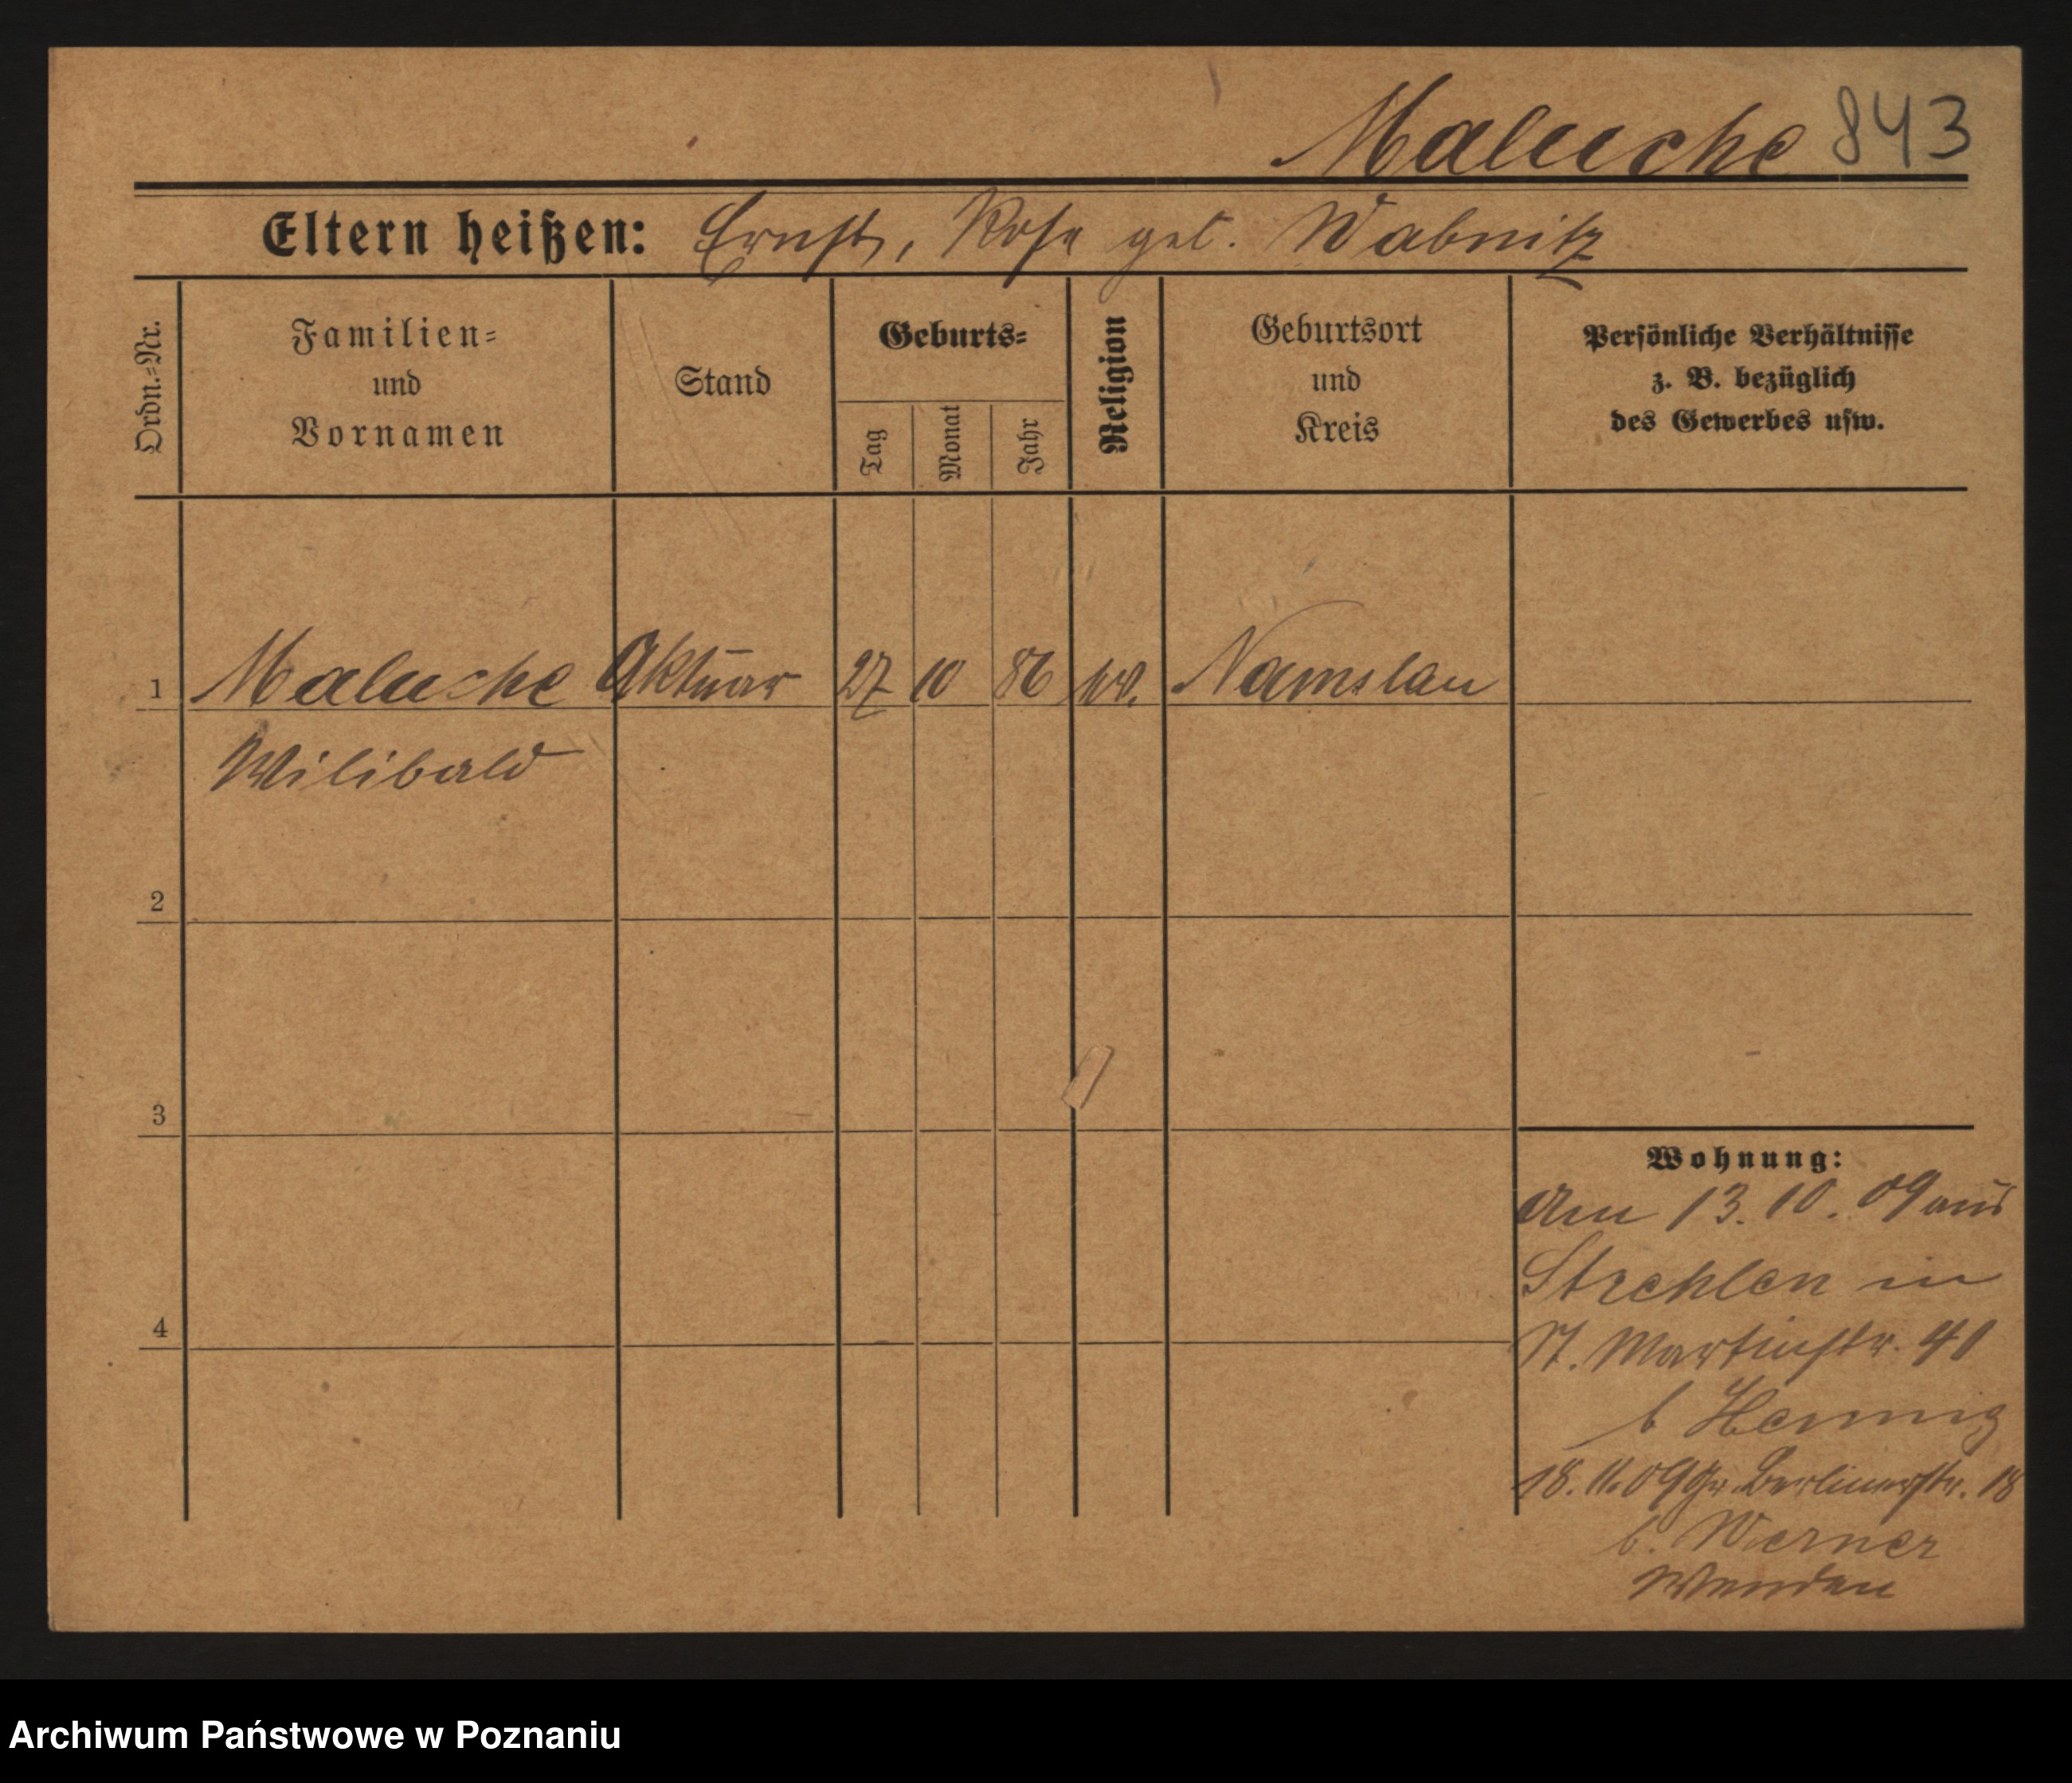 Maluche 843
Eltern heißen: Ernst, Rosa geb. Wabnitz
Ordn.=Nr.
Familien=
und
Vornamen
Stand
Geburts=
Tag
Monat
Jahr
Religion
Geburtsort
und
Kreis
Persönliche Verhältnisse
z. B. bezüglich
des Gewerbes usw.
1 Maluche Aktuar 27 10 86 Namslau
Wilibald
2
3
4
Wohnung:
Am 13. 10. 09 aus
Strehlen in
St. Martinstr. 40
b Hennig
18. 11. 09 Gr. Berlinerstr. 18
b. Werner
Wenden
Archiwum Państwowe w Poznaniu